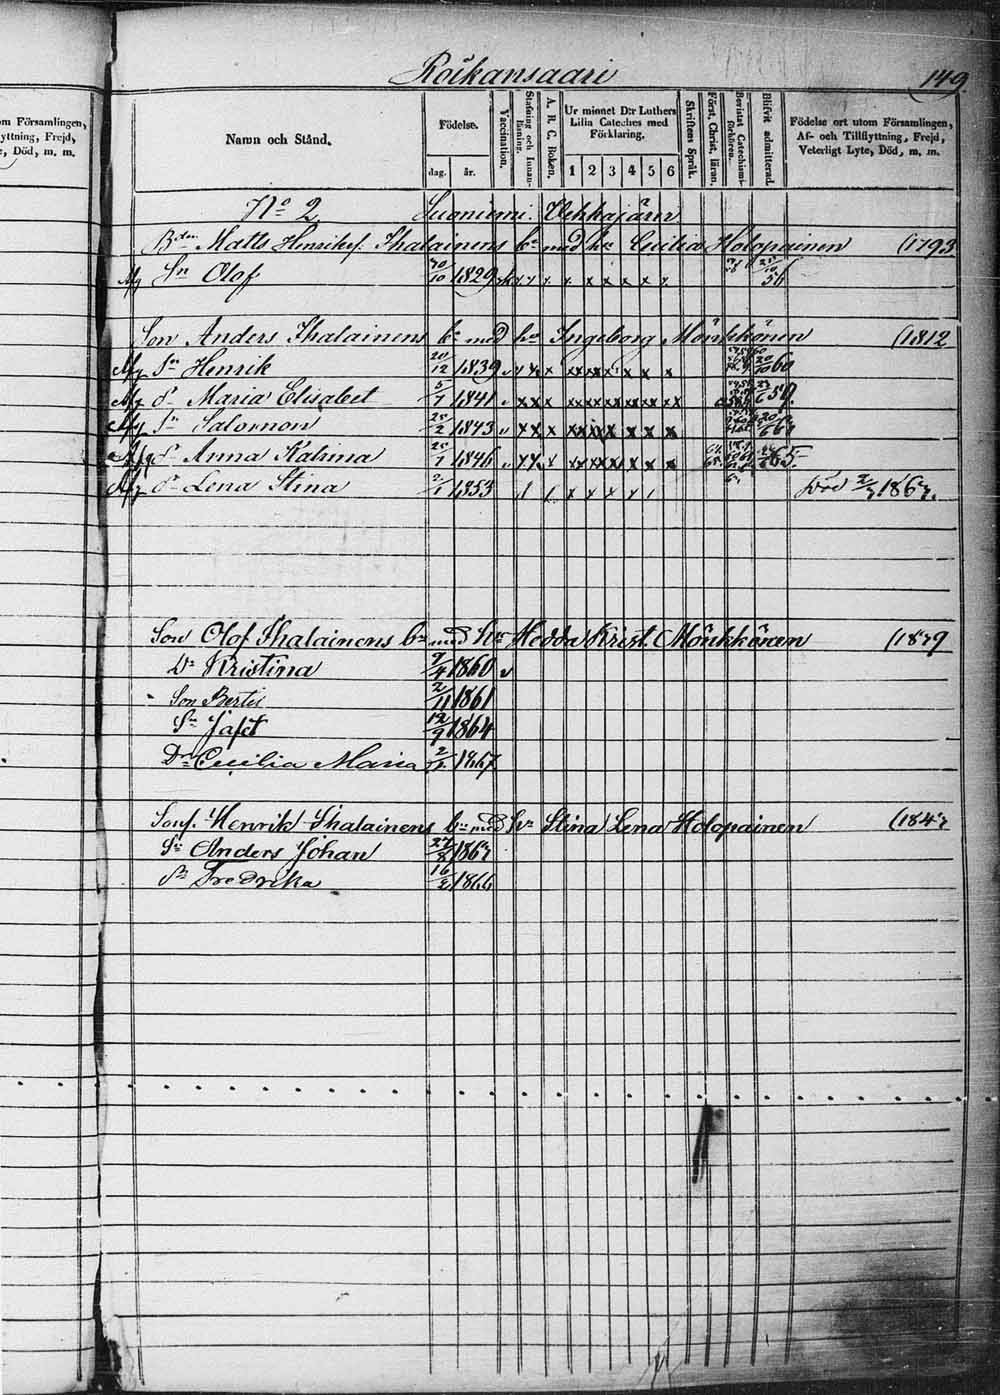 Roikansaari 149
om Församlingen,
yttning, Frejd,
e, Död, m. m.
Namn och Stånd.
Födelse.
dag. år.
Vaccination.
Stafning och Innan-
läsning.
A. B. C. Boken.
Ur minnet D:r Luthers
Lilla Cateches med
Förklaring.
1 2 3 4 5 6
Skriftens Språk.
Först. Christ. läran.
Bevistat Catechismi-
förhören.
Blifvit admitterad.
Födelse ort utom Församlingen,
Af- och Tillflyttning, Frejd,
Veterligt Lyte, Död, m. m.
No 2 Suoniemi. Vehkajärvi
Bden Matts Henriksf. Ihalainens bn med hu Cecilia Holopainen (1793
Sn Olof 30/10 1829 x x x x x x x 56
Son Anders Ihalainens bn med hu Ingeborg Mönkkönen (1812
Sn Henrik 20/12 1839 x x x x x x x 20/10 60
dr Maria Elisabet 5/7 1841 x x x x x x x x x 59
Sn Salomon 25/2 1843 x x x x x x x x
dr Anna Katrina 20/1 1846 x x x x x x x x 65
dr Lena Stina 2/1 1853 x x x x död 2/3 1863.
Son Olof Ihalainens bn med hu Hedda Krist. Mönkkönen (1829
Dr Kristina 9/4 1860 v
Son Bertil 2/11 1861
Sn Jafet 12/9 1864
Dr Cecilia Maria 1867
Sonf. Henrik Ihalainens bn med hu Stina Lena Holopainen (1843
Sn Anders Johan 27/8 1863
Dr Fredrika 16/2 1866